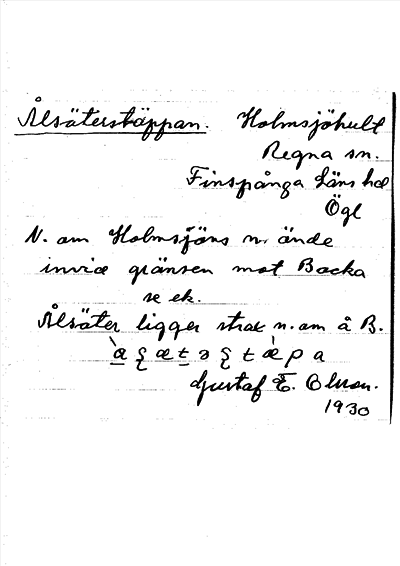 Ålsäterstäppan. Holmsjöhult
Regna sn.
Finspånga läns hd
Ögl
N. om Holmsjöns n. ände
invid gränsen mot Backa
se ek.
Ålsäter ligger strax n. om å B.
Gustaf E. Olsson.
1930